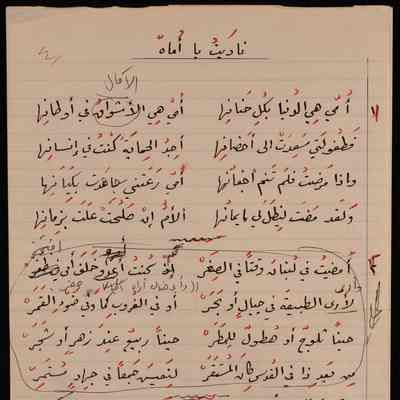 ناديتُ يا أُماهُ
الآمال
أُمّي هِيَ الدُنيا بكُلِ حَنانِها أُمّي هِيَ الأشواقُ في أوطانِها
١
فَطُفولَتي سَعِدَتْ الى أحْضانِها أجِدُ الحِمايَةَ كُنتُ في إنسانِها
وإذا مَرِضتُ فلَم تَنَم أجْفانُها أُمّي رَعَتْني جاهَدَتْ بكِيانِها
وَلَقَد مَضَت لِتظَلَ لي بايمانُها الأُمُ إنْ صَلُحَتْ عَلَتْ بزمانِها
أمضَيْتُ في لبنانَ وقتاً في الصِغَرْ كُنتُ خَلفَ أبي
٢
لأرى الطبيعَةَ في جبالٍ أو بَحَرْ أو في الغروبِ كما وفي ضَوءِ القَمَرْ
حيناً ثلوجٌ أو هُطولٌ للمَطَرْ حيناً ربيعٌ عِندَ زهرٍ أو شَجَرْ
مِن بعدِ ذا في القُدسِ كانَ المُستَقَرْ لِنَعيشَ جَمعاً في جِهادٍ مُستَمِرْ